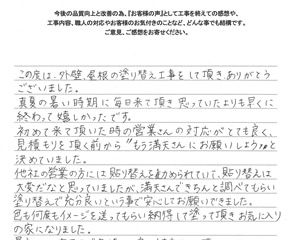 今後の品質向上と改善の為、『お客様の声』として工事を終えての感想や、
工事内容、職人の対応やお客様のお気付きのことなど、どんな事でも結構です。
ご意見、ご感想をお寄せください。
この度は、外壁、屋根の塗り替え工事をして頂きありがとう
ございました。
真夏の暑い時期に毎日来て頂き思っていたよりも早くに
終わって嬉しかったです。
初めて来て頂いた時の営業さんの対応がとても良く、
見積もりを頂く前から"もう満天さんにお願いしよう"と
決めていました。
他社の営業の方には貼り替えを勧められていて、貼り替えは
大変だなと思っていましたが、満天さんできちんと調べてもらい
塗り替えで充分という事で安心してお願いできました。
色も何度もイメージを送ってもらい納得して塗って頂きお気に入り
の家になりました。